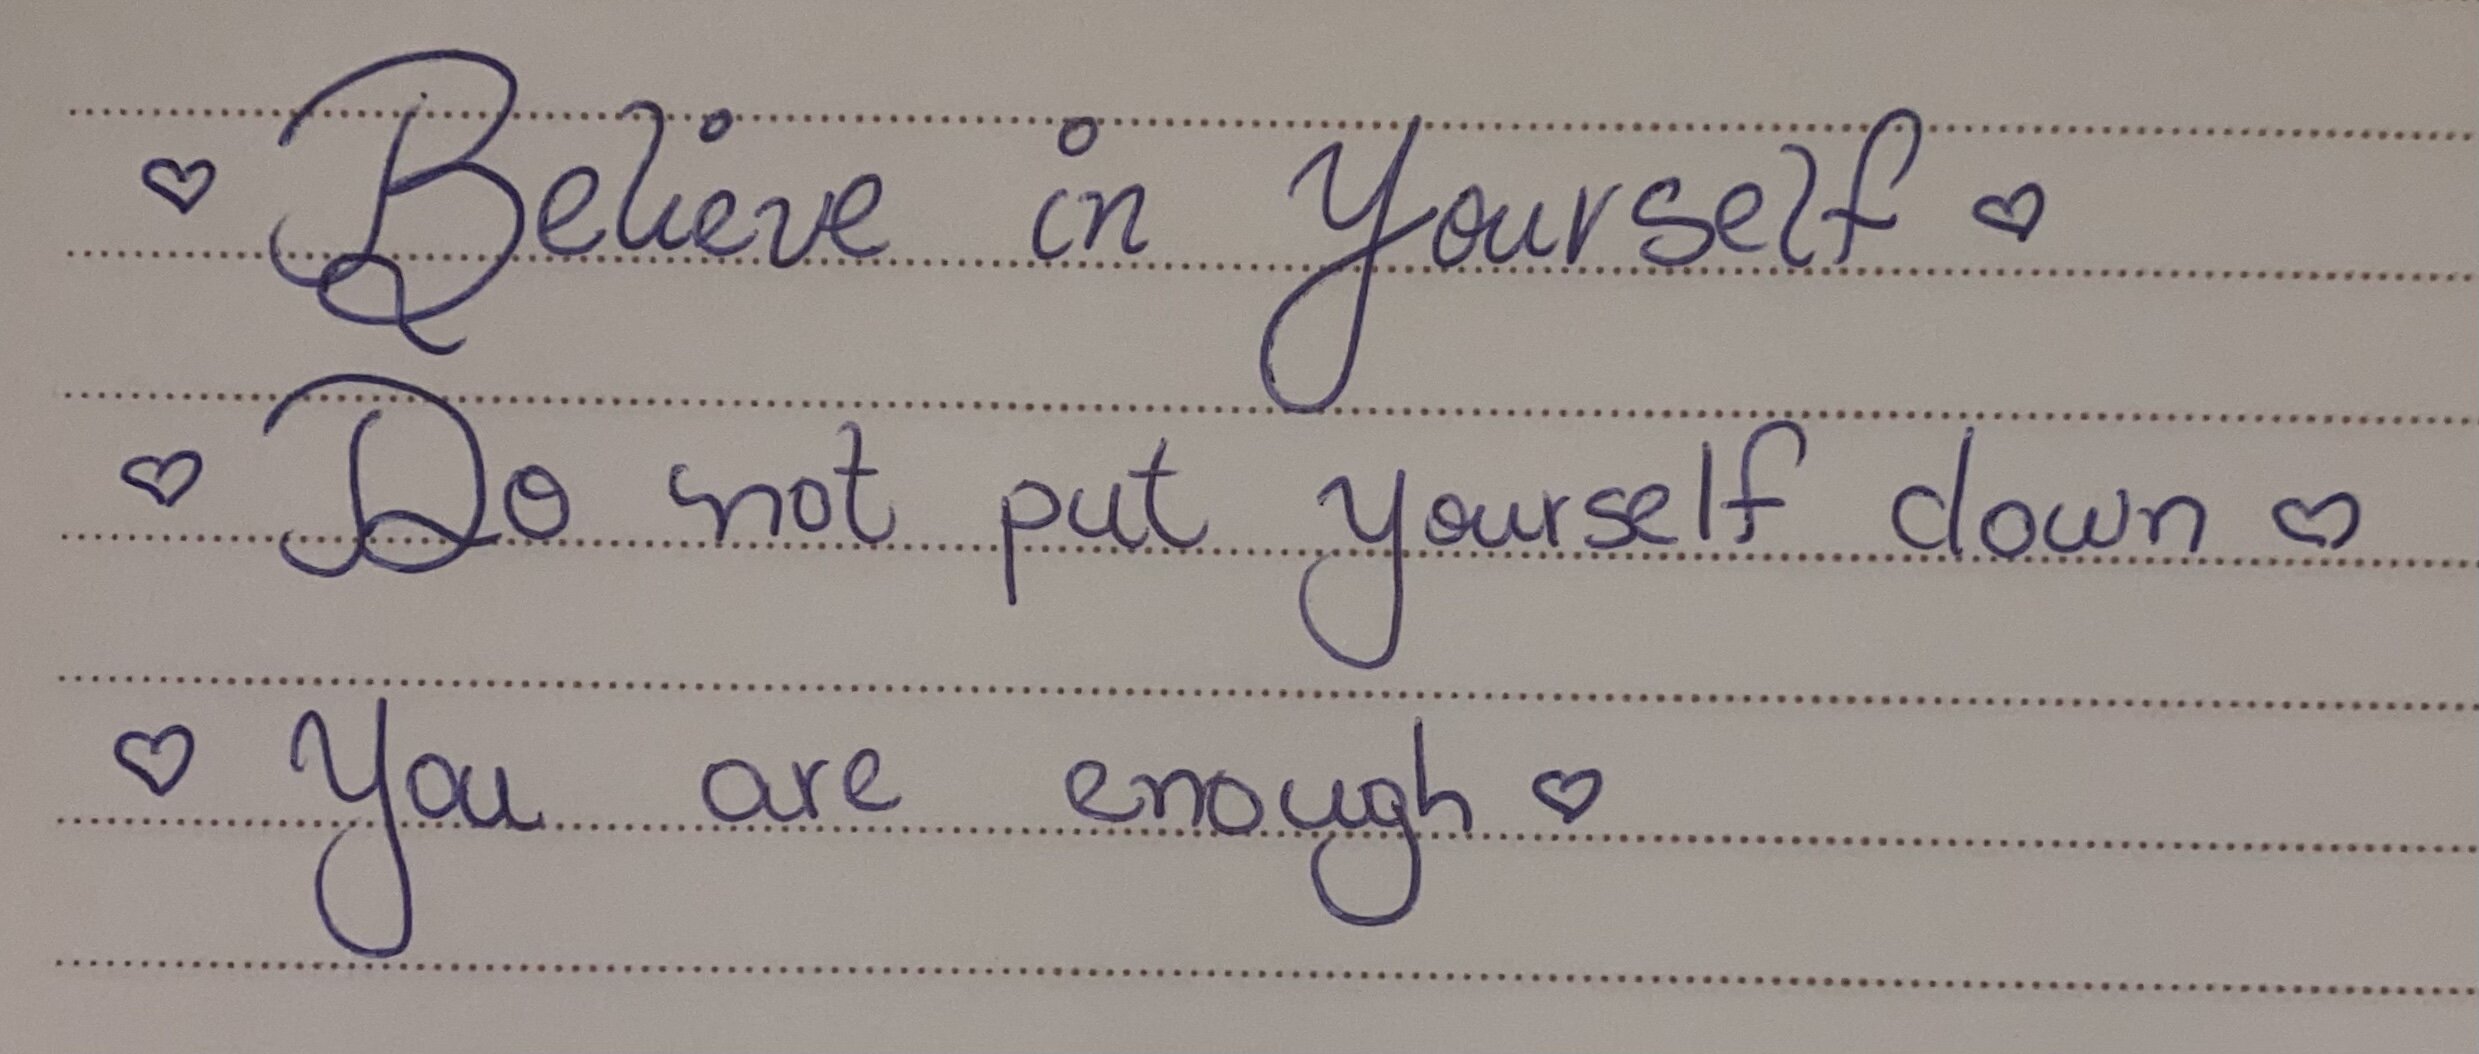 ♡ Believe in Yourself ♡
♡ Do not put yourself down ♡
♡ You are enough ♡